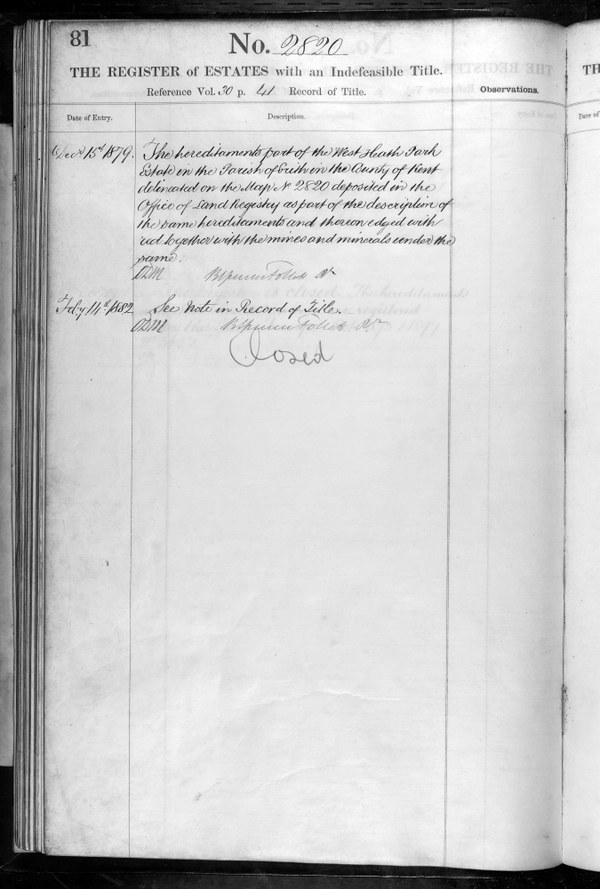 81
No. 2820
THE REGISTER of ESTATES with an Indefeasible Title.
Reference Vol. 30 p. 41 Record of Title.
Observations.
Date of Entry.
Description.
Decr 15th 1879.
The hereditaments part of the West Heath Park
Estate in the Parish of Erith in the County of Kent
delineated on the Map No 2820 deposited in the
Office of Land Registry as part of the description of
the same hereditaments and thereon edged with
red together with the mines and minerals under the
same.
Feby 14th 1882
See Note in Record of Title.
Closed
TH
Date of